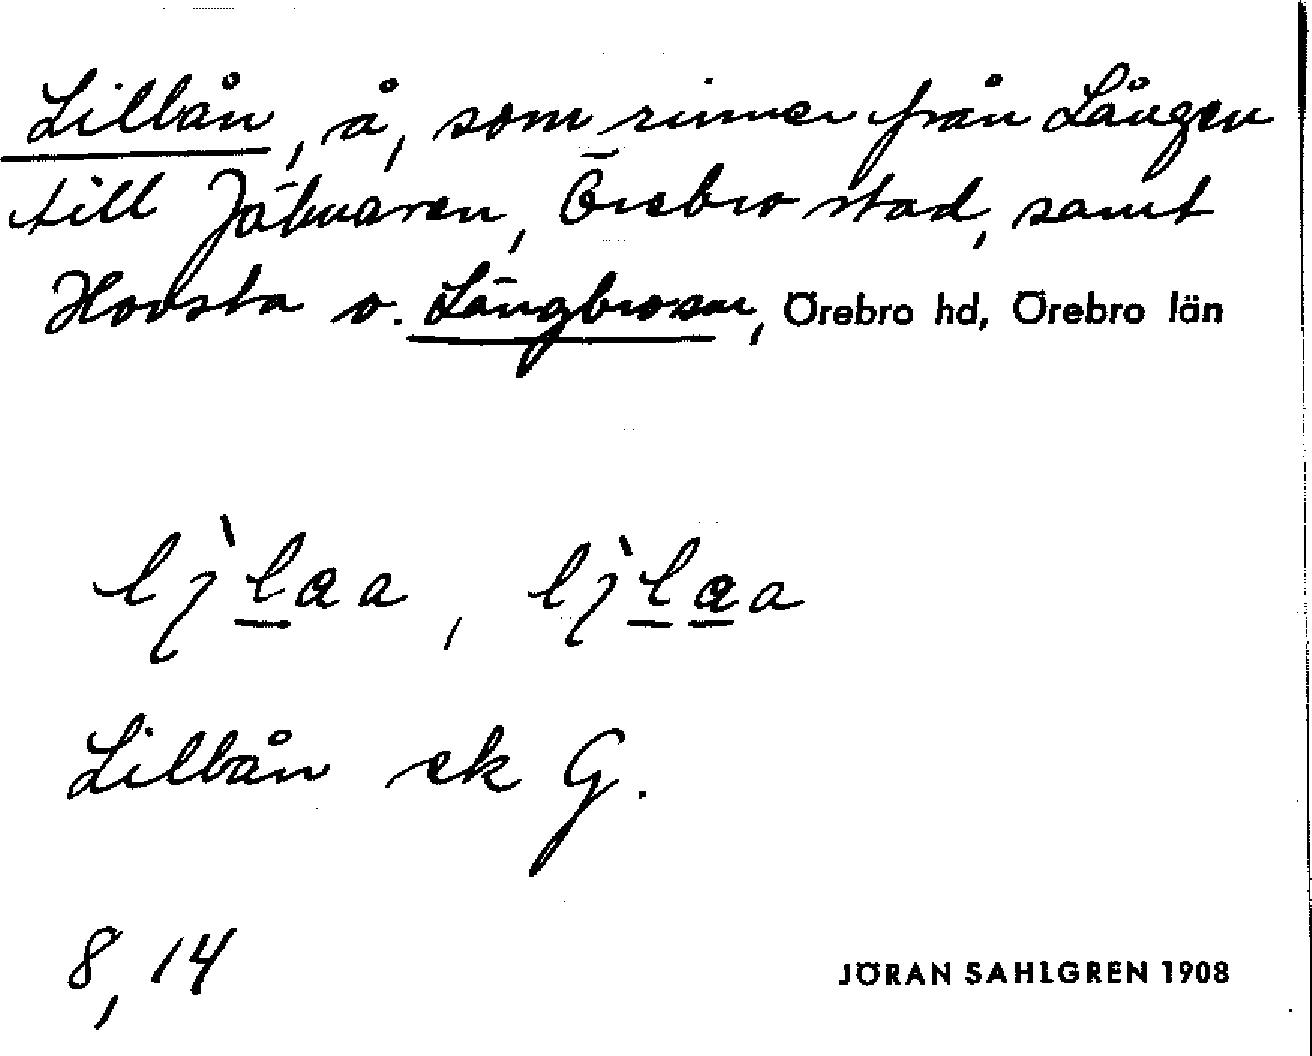 Lillån, å, som rinner från Lången
till Hjälmaren, Örebro stad, samt
Hovsta o. Längbro snr, Örebro hd, Örebro län
Lillån ek G.
8, 14
JÖRAN SAHLGREN 1908